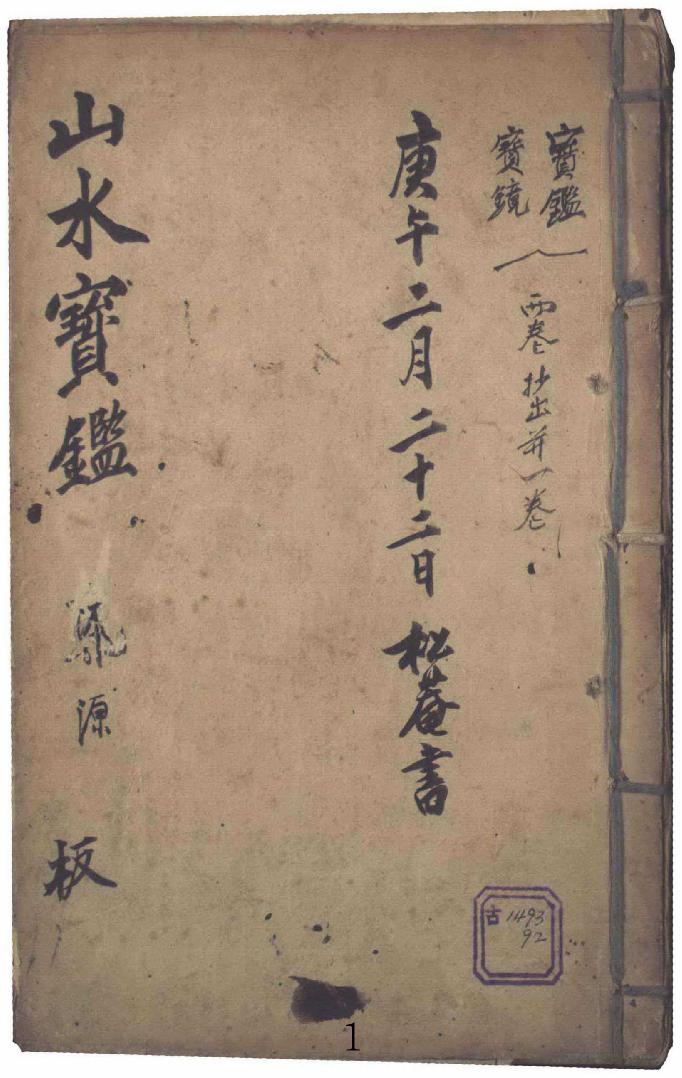 寶鑑
寶鏡
兩卷抄出并一卷
庚午二月二十二日 松菴書
山水寶鑑
源
板
古 1493
92
1